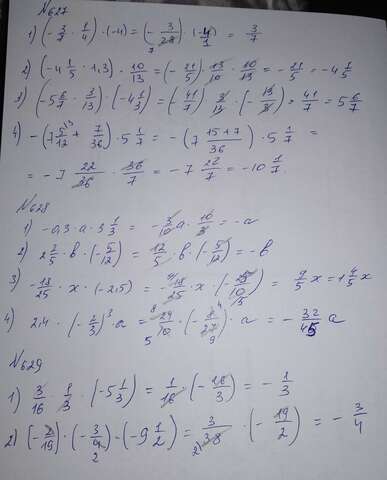 №627
1) (-3/7 · 1/4) · (-4) = (-3/28) · (-4/1) = 3/7
2) (-4 1/5 · 1,3) · 10/13 = (-21/5) · 13/10 · 10/13 = -21/5 = -4 1/5
3) (-5 6/7 · 3/13) · (-4 1/3) = (-41/7) · 3/13 · (-13/3) = 41/7 = 5 6/7
4) -(7 5/12 + 7/36) · 5 1/7 = -(7 15+7/36) · 5 1/7 =
= -7 22/36 · 36/7 = -7 22/7 = -10 1/7.
№628
1) -0,3a · 3 1/3 = -3/10 a · 10/3 = -a
2) 2 2/5 · b · (-5/12) = 12/5 · b · (-5/12) = -b
3) -18/25 · x · (-2,5) = -18/25 · x · (-25/10) = 9/5 x = 1 4/5 x
4) 2,4 · (-2/3)³ a = 24/10 · (-8/27) · a = -32/45 a
№629
1) 3/16 · 1/3 · (-5 1/3) = 1/16 · (-16/3) = -1/3
2) (-2/19) · (-3/4) · (-9 1/2) = 3/38 · (-19/2) = -3/4